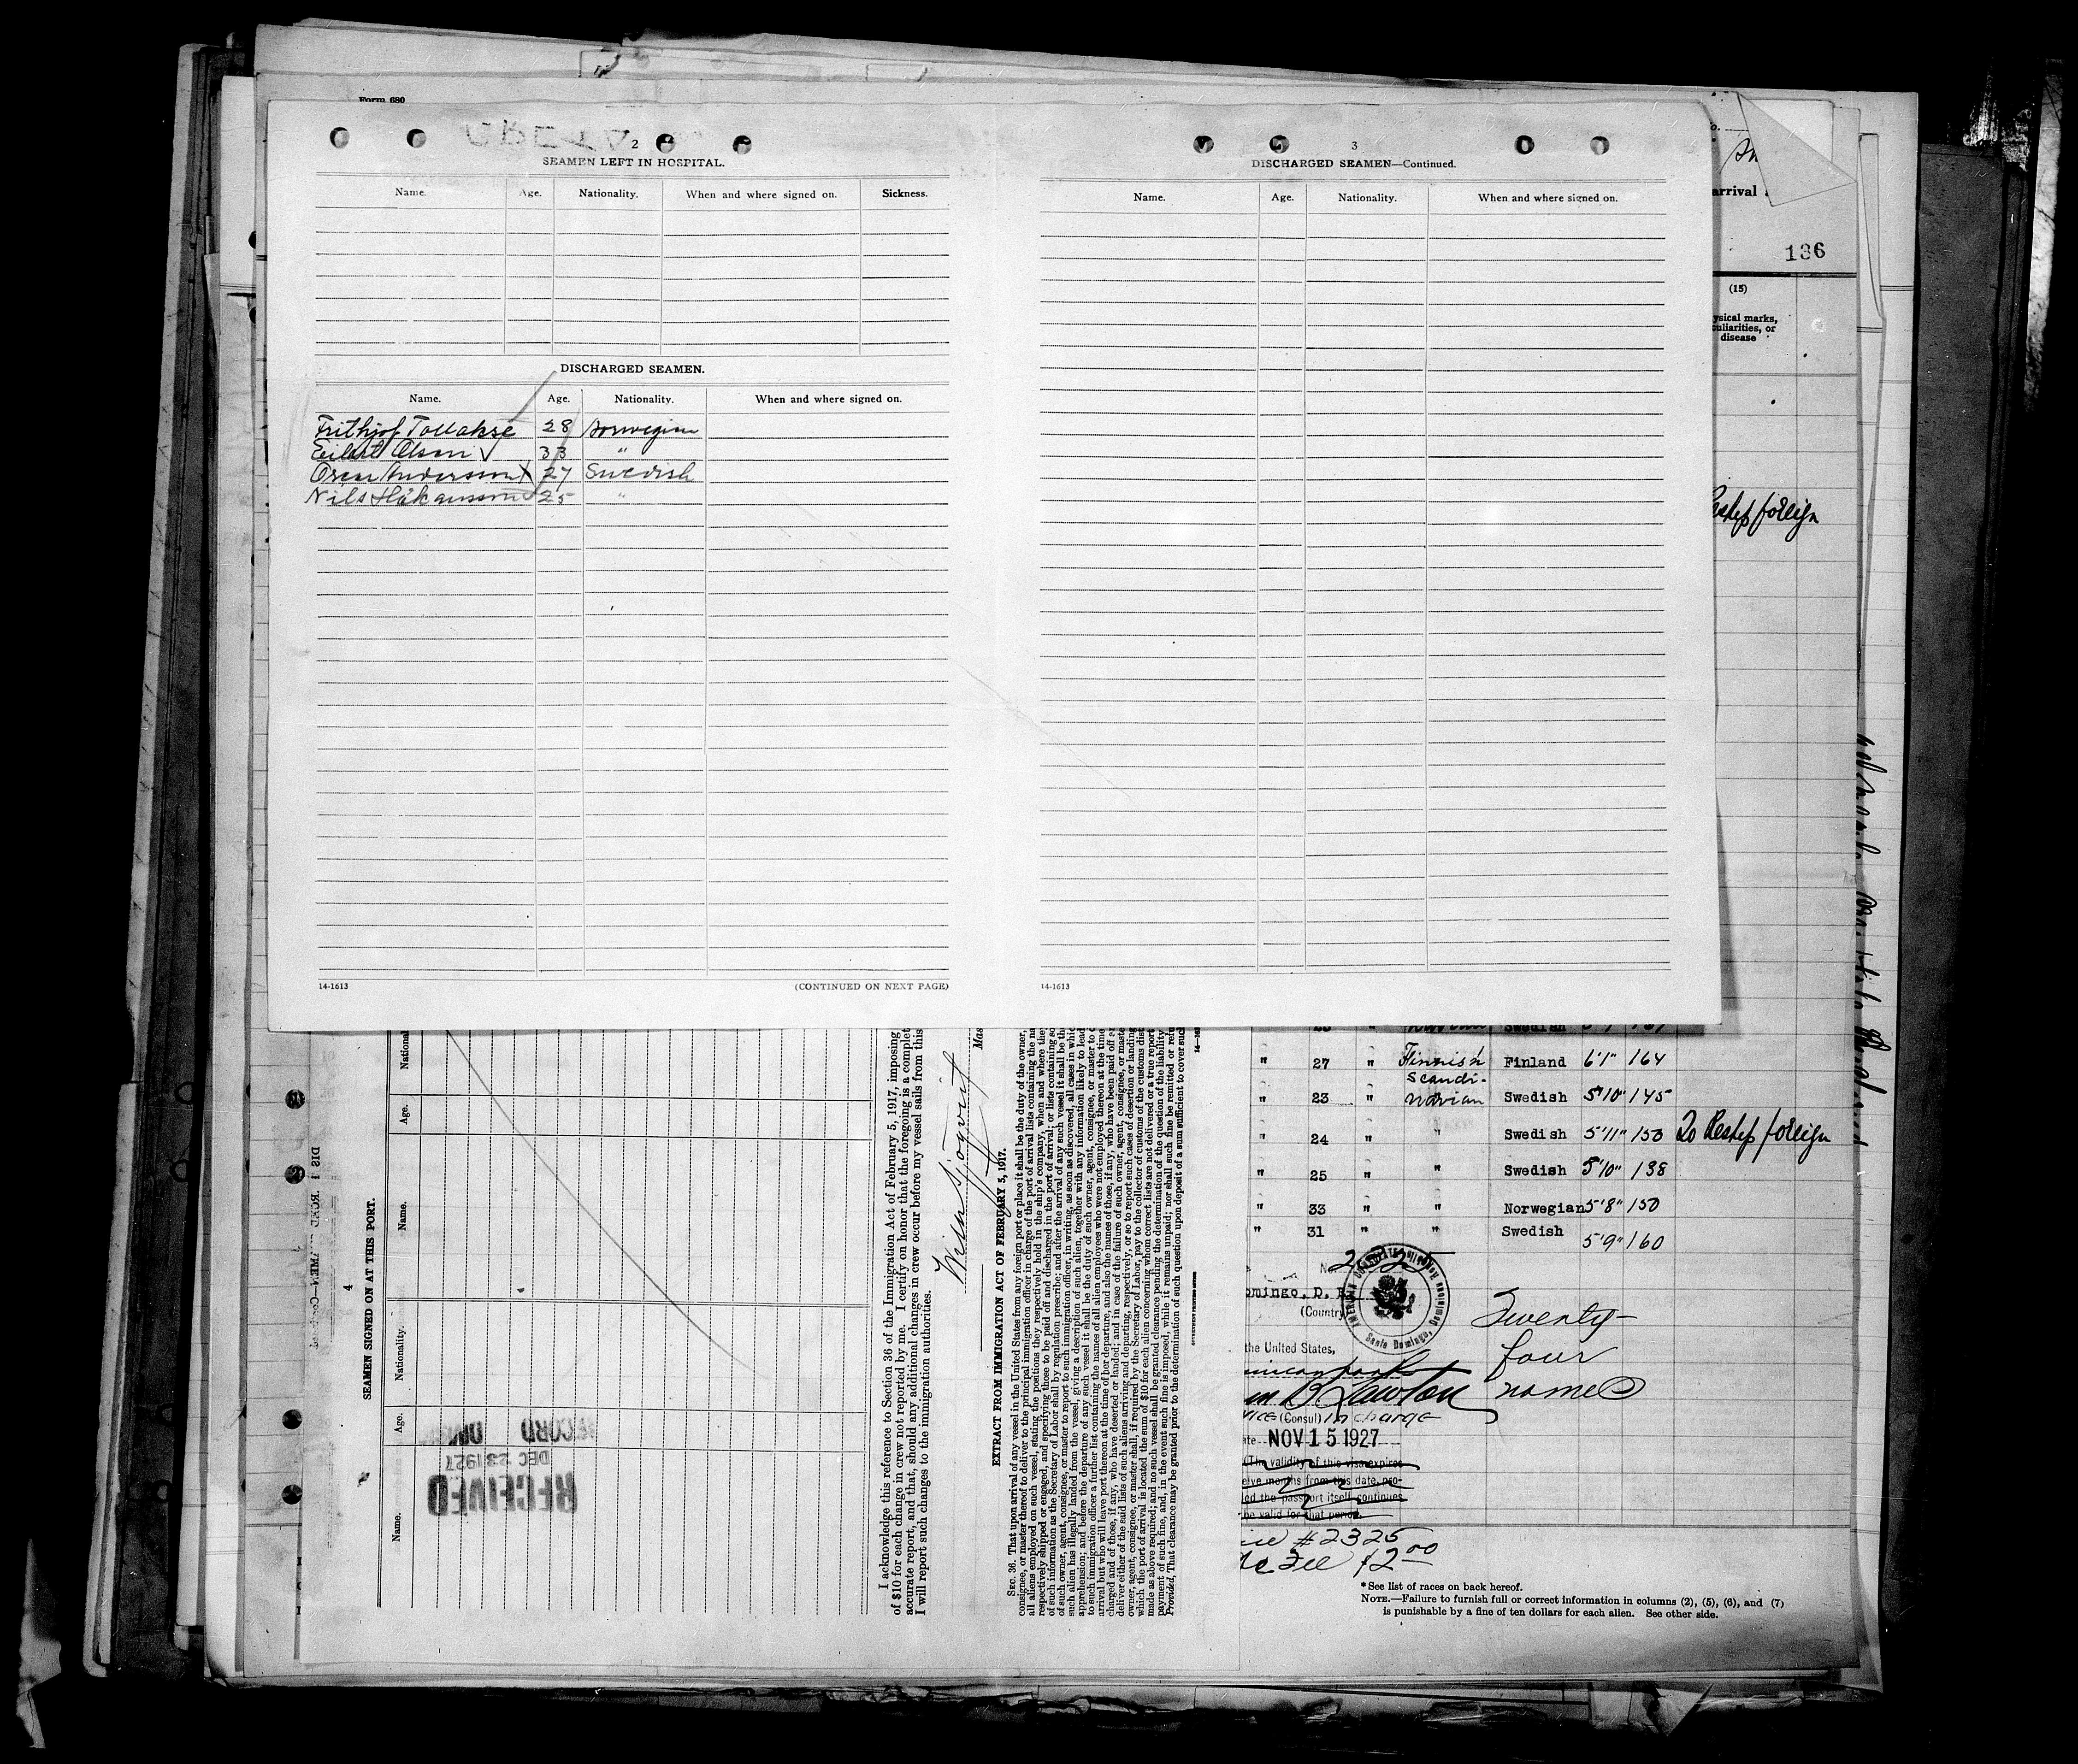 Form 680
2
SEAMEN LEFT IN HOSPITAL.
Name. Age. Nationality. When and where signed on. Sickness.
DISCHARGED SEAMEN.
Name. Age. Nationality. When and where signed on.
Frithjof Tollakse 28 Norwegian
Eilert Olsen 33 "
Oscar Andersson 27 Swedish
Nils Håkansson 25 "
14-1613
(CONTINUED ON NEXT PAGE)
3
DISCHARGED SEAMEN—Continued.
Name. Age. Nationality. When and where signed on.
14-1613
arrival
136
(15)
ysical marks,
uliarities, or
disease
foreign
4
SEAMEN SIGNED ON AT THIS PORT.
Name. Age. Nationality. Name. Age. National
RECEIVED
DEC 23 1927
RECORD DIV
I acknowledge this reference to Section 36 of the Immigration Act of February 5, 1917, imposing
of $10 for each change in crew not reported by me. I certify on honor that the foregoing is a complet
accurate report, and that, should any additional changes in crew occur before my vessel sails from this
I will report such changes to the immigration authorities.
Mas
EXTRACT FROM IMMIGRATION ACT OF FEBRUARY 5, 1917.
SEC. 36. That upon arrival of any vessel in the United States from any foreign port or place it shall be the duty of the owner,
consignee, or master thereof to deliver to the principal immigration officer in charge of the port of arrival lists containing the na
all aliens employed on such vessel, stating the positions they respectively hold in the ship's company, when and where they
respectively shipped or engaged, and specifying those to be paid off and discharged in the port of arrival; or lists containing so
of such information as the Secretary of Labor shall by regulation prescribe; and after the arrival of any such vessel it shall be the
of such owner, agent, consignee, or master to report to such immigration officer, in writing, as soon as discovered, all cases in whic
such alien has illegally landed from the vessel, giving a description of such alien, together with any information likely to lead
apprehension; and before the departure of any such vessel it shall be the duty of such owner, agent, consignee, or master to d
to such immigration officer a further list containing the names of all alien employees who were not employed thereon at the time
arrival but who will leave port thereon at the time of her departure, and also the names of those, if any, who have been paid off a
charged and of those, if any, who have deserted or landed; and in case of the failure of such owner, agent, consignee, or maste
deliver either of the said lists of such aliens arriving and departing, respectively, or so to report such cases of desertion or landing
owner, agent, consignee, or master shall, if required by the Secretary of Labor, pay to the collector of customs of the customs dist
which the port of arrival is located the sum of $10 for each alien concerning whom correct lists are not delivered or a true report
made as above required; and no such vessel shall be granted clearance pending the determination of the question of the liability
payment of such fine, and, in the event such fine is imposed, while it remains unpaid; nor shall such fine be remitted or refu
Provided, That clearance may be granted prior to the determination of such question upon deposit of a sum sufficient to cover suc
" 27 " Finnish Finland 6'1" 164
" 23 " Scandinavian Swedish 5'10" 145
" 24 " " Swedish 5'11" 150 foreign
" 25 " " Swedish 5'10" 138
" 33 " " Norwegian 5'8" 150
" 31 " " Swedish 5'9" 160
omingo, D. R.
(Country)
Santa Domingo, Dominican Republic
the United States,
Twenty-
four
names
B Lawton
Vice (Consul) in charge
NOV 15 1927
The validity of this visa expires
elve months from this date, pro-
ed the passport itself continues
be valid for that period.
#2325
Fee $2 00
* See list of races on back hereof.
NOTE.—Failure to furnish full or correct information in columns (2), (5), (6), and (7)
is punishable by a fine of ten dollars for each alien. See other side.